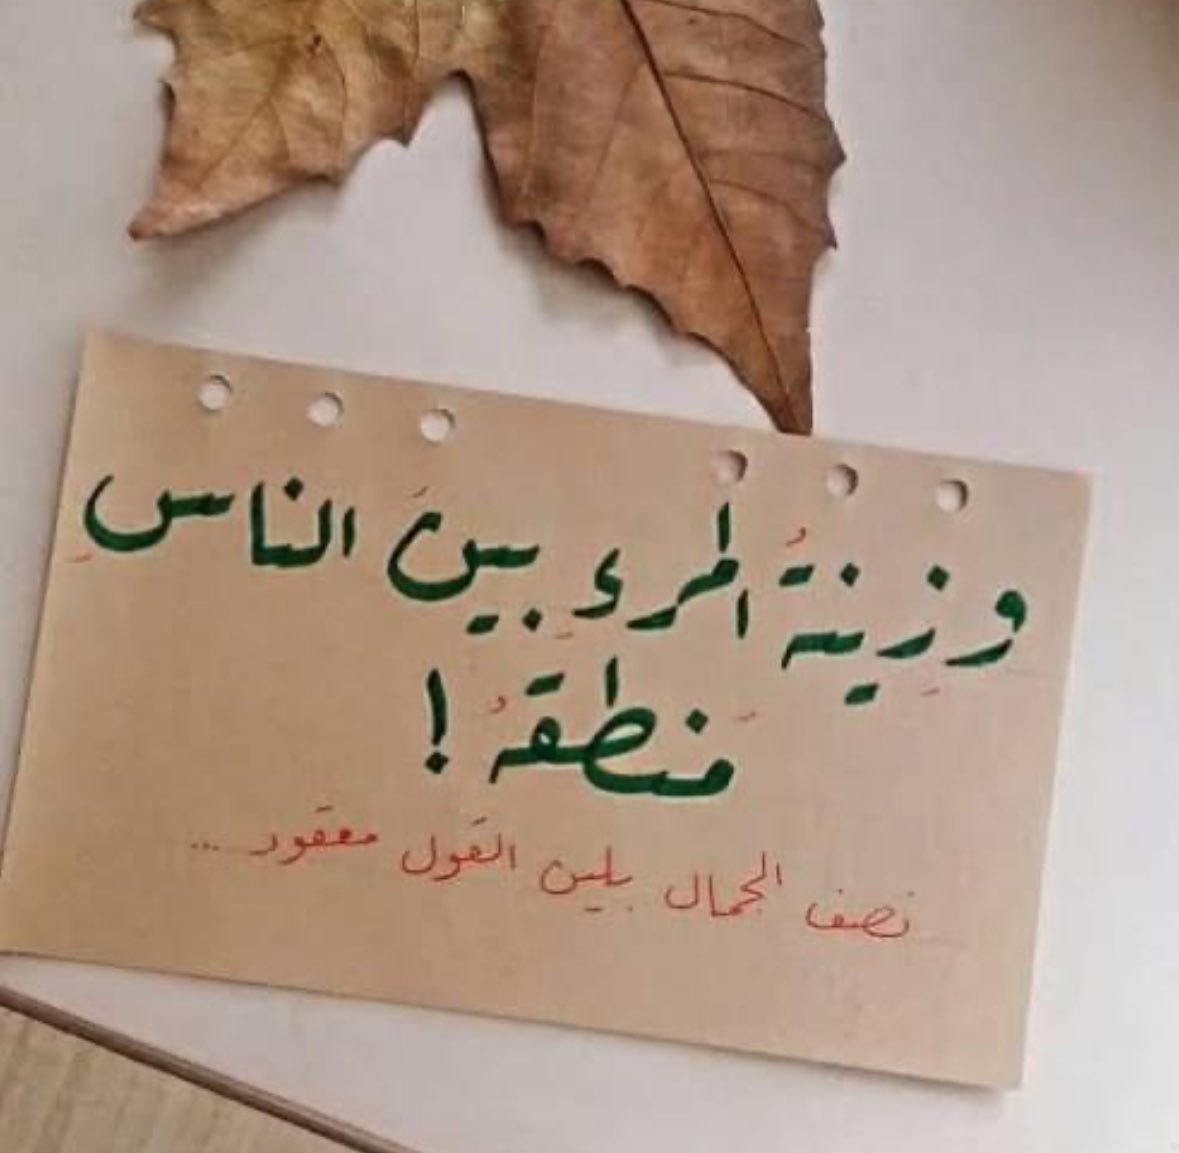 وزِينةُ المرءِ بينَ الناسِ
مَنطقهُ !
نصف الجمال بلين القَول معقَود ...